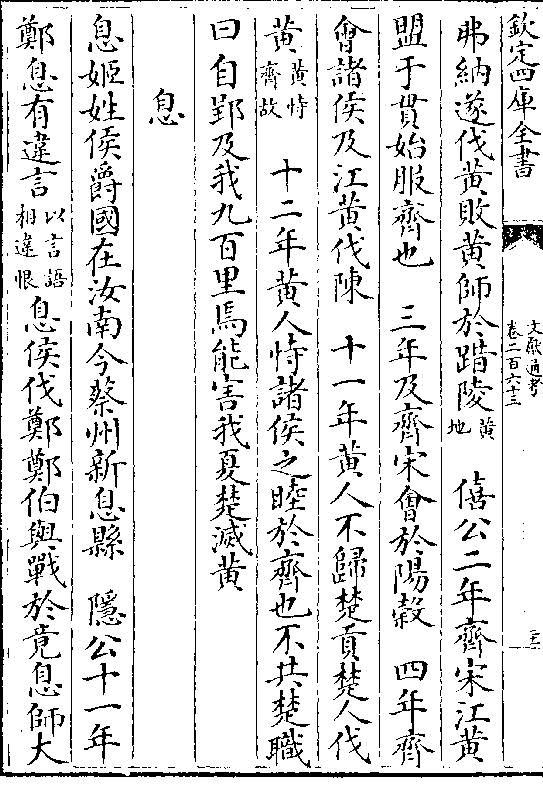 欽定四庫全書
文獻通考
卷二百六十三
弗納遂伐黃敗黃師於踖陵黃地　僖公二年齊宋江黃
盟于貫始服齊也　三年及齊宋會於陽穀　四年齊
會諸侯及江黃伐陳　十一年黃人不歸楚貢楚人伐
黃黃恃齊故　十二年黃人恃諸侯之睦於齊也不共楚職
曰自郢及我九百里焉能害我夏楚滅黃
息
息姬姓侯爵國在汝南今蔡州新息縣　隱公十一年
鄭息有違言以言語相違恨息侯伐鄭鄭伯與戰於竟息師大